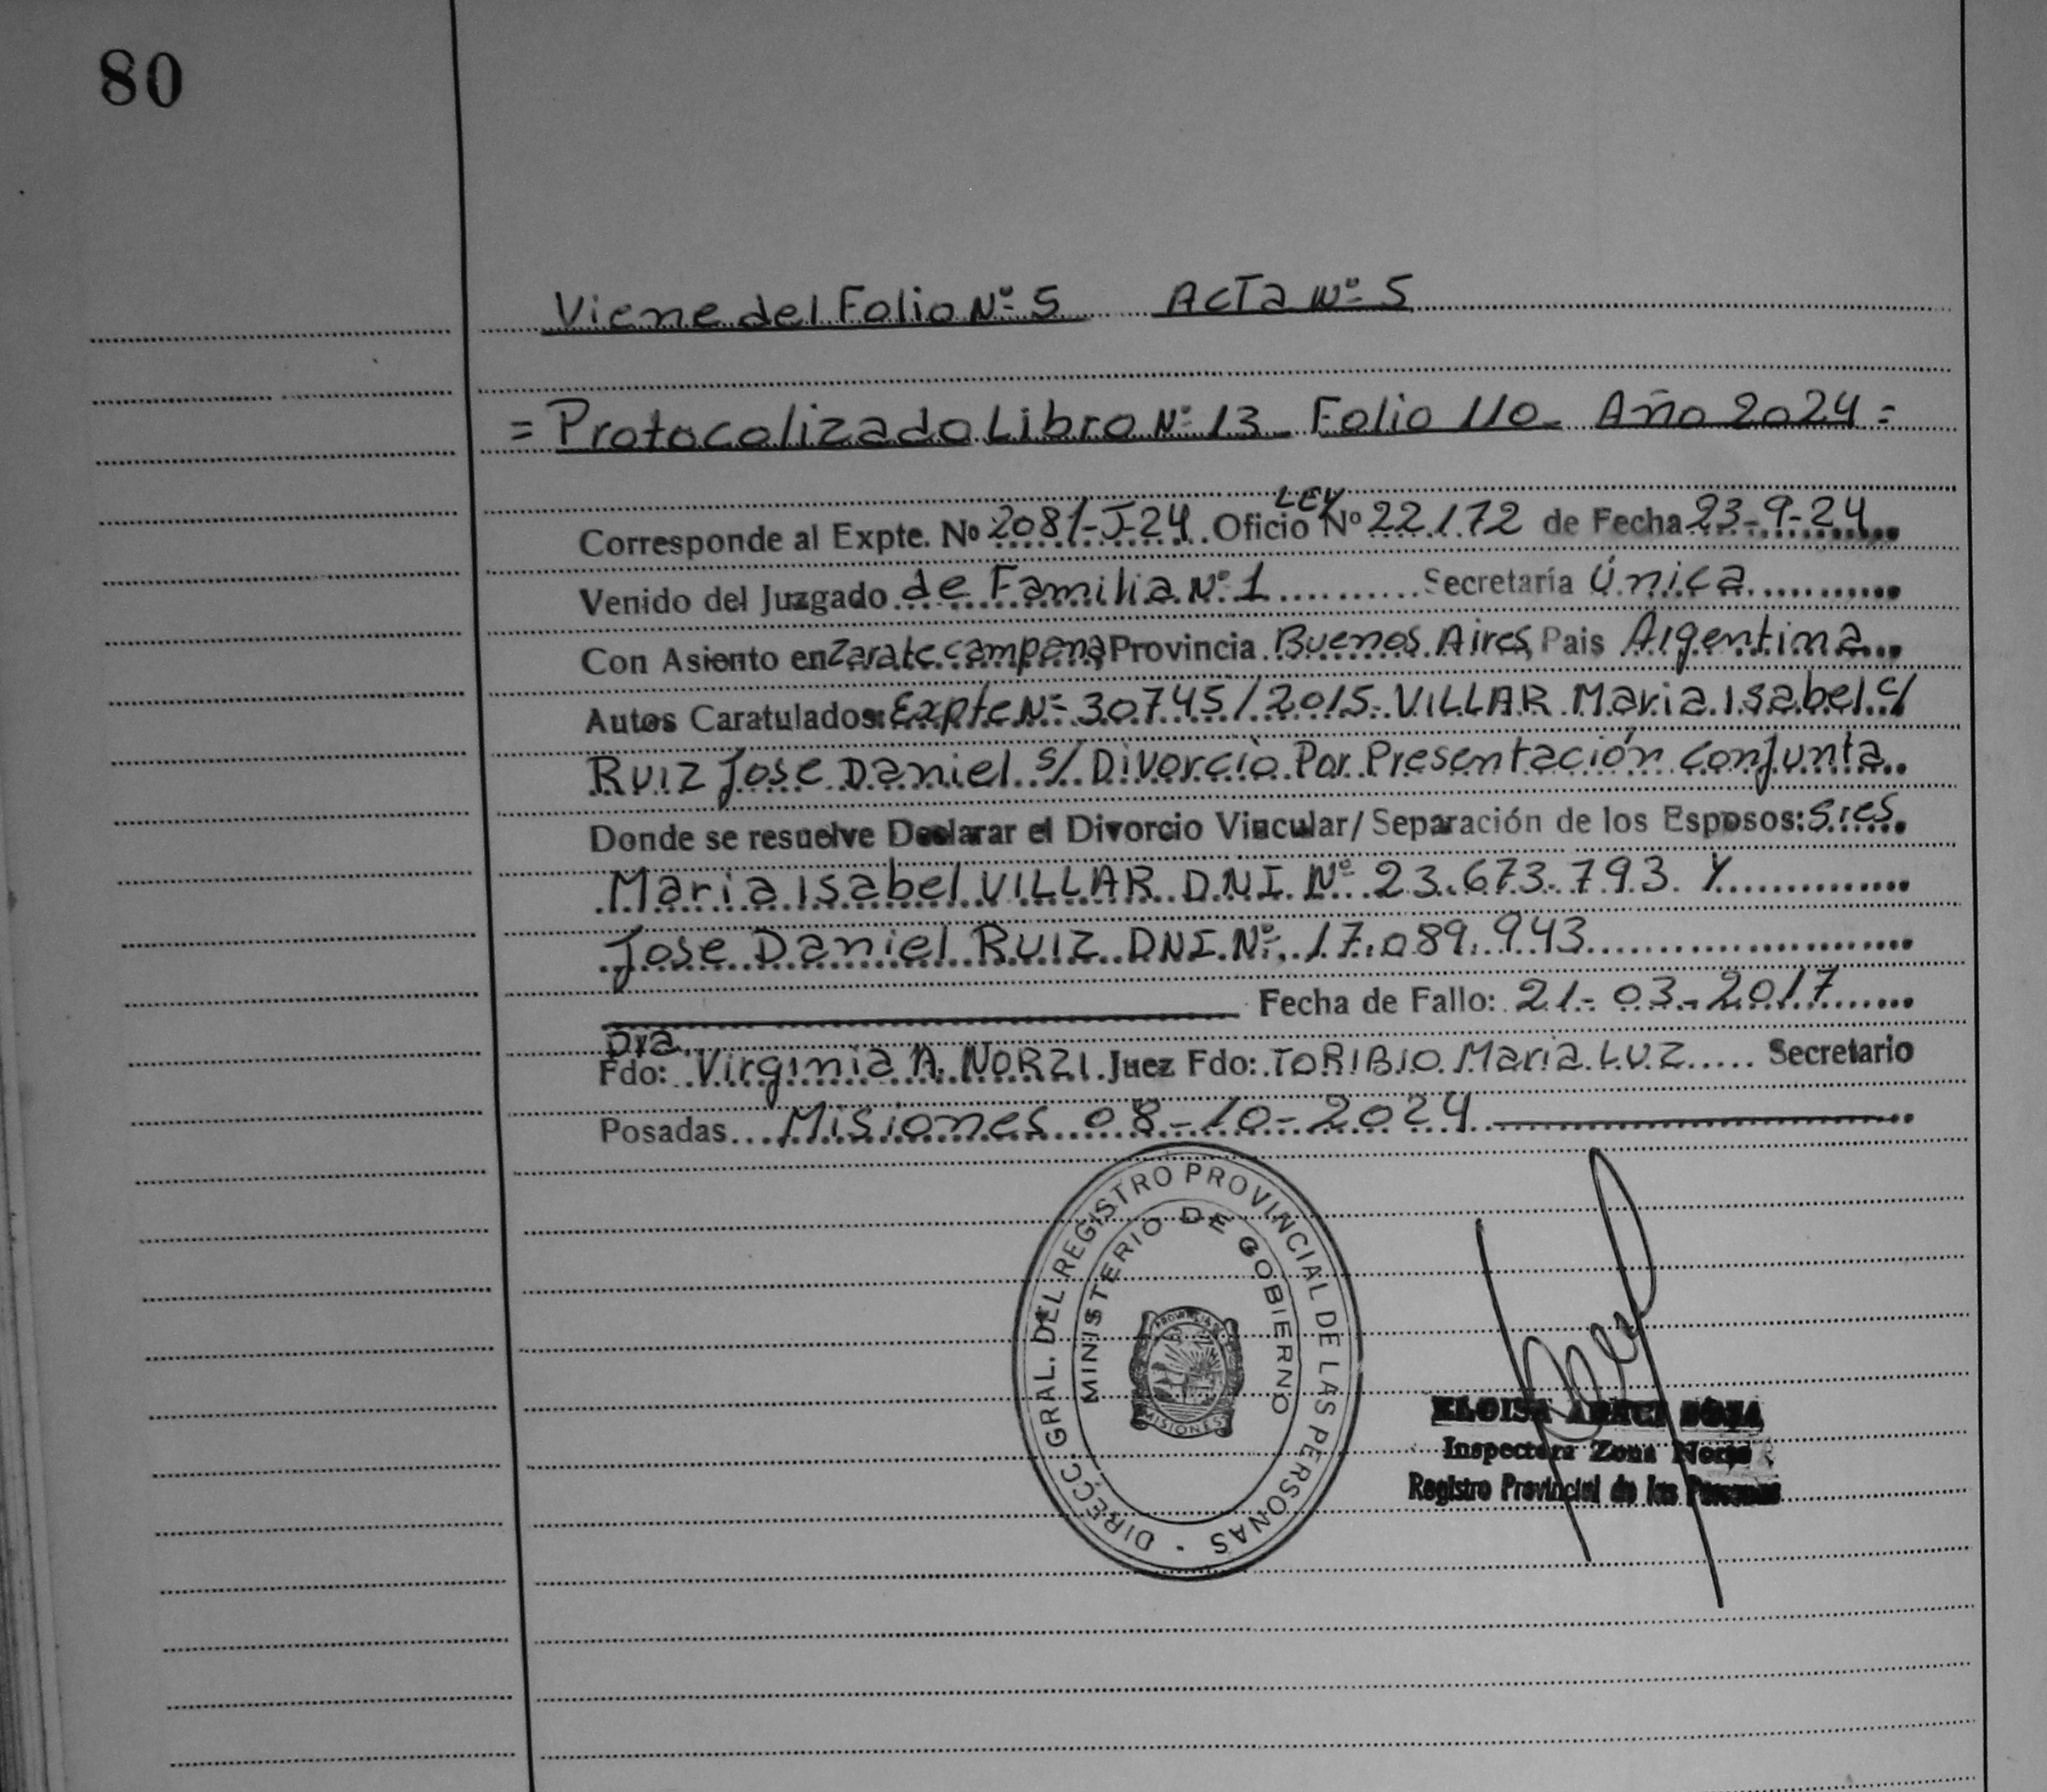 80
Viene del Folio Nº 5 Acta Nº 5
= Protocolizado Libro Nº 13 Folio 110 Año 2024 =
LEY
Corresponde al Expte. Nº 2081-J-24 Oficio Nº 22.172 de Fecha 23-9-24
Venido del Juzgado de Familia Nº 1 Secretaría Única
Con Asiento en Zarate Campana Provincia Buenos Aires, Pais Argentina
Autos Caratulados: Expte Nº 30745/2015. VILLAR Maria Isabel c/
RUIZ Jose Daniel s/ Divorcio Por Presentación conjunta
Donde se resuelve Declarar el Divorcio Vincular/Separación de los Esposos: Sres.
Maria Isabel VILLAR DNI. Nº 23.673.793 Y
Jose Daniel RUIZ DNI. Nº 17.089.943
Fecha de Fallo: 21-03-2017
Dra.
Fdo: Virginia A. NORZI Juez Fdo: TORIBIO Maria LUZ Secretario
Posadas Misiones 08-10-2024
DIRECC. GRAL. DEL REGISTRO PROVINCIAL DE LAS PERSONAS
MINISTERIO DE GOBIERNO
MISIONES
ELOISA
Inspectora Zona Norte
Registro Provincial de las Personas